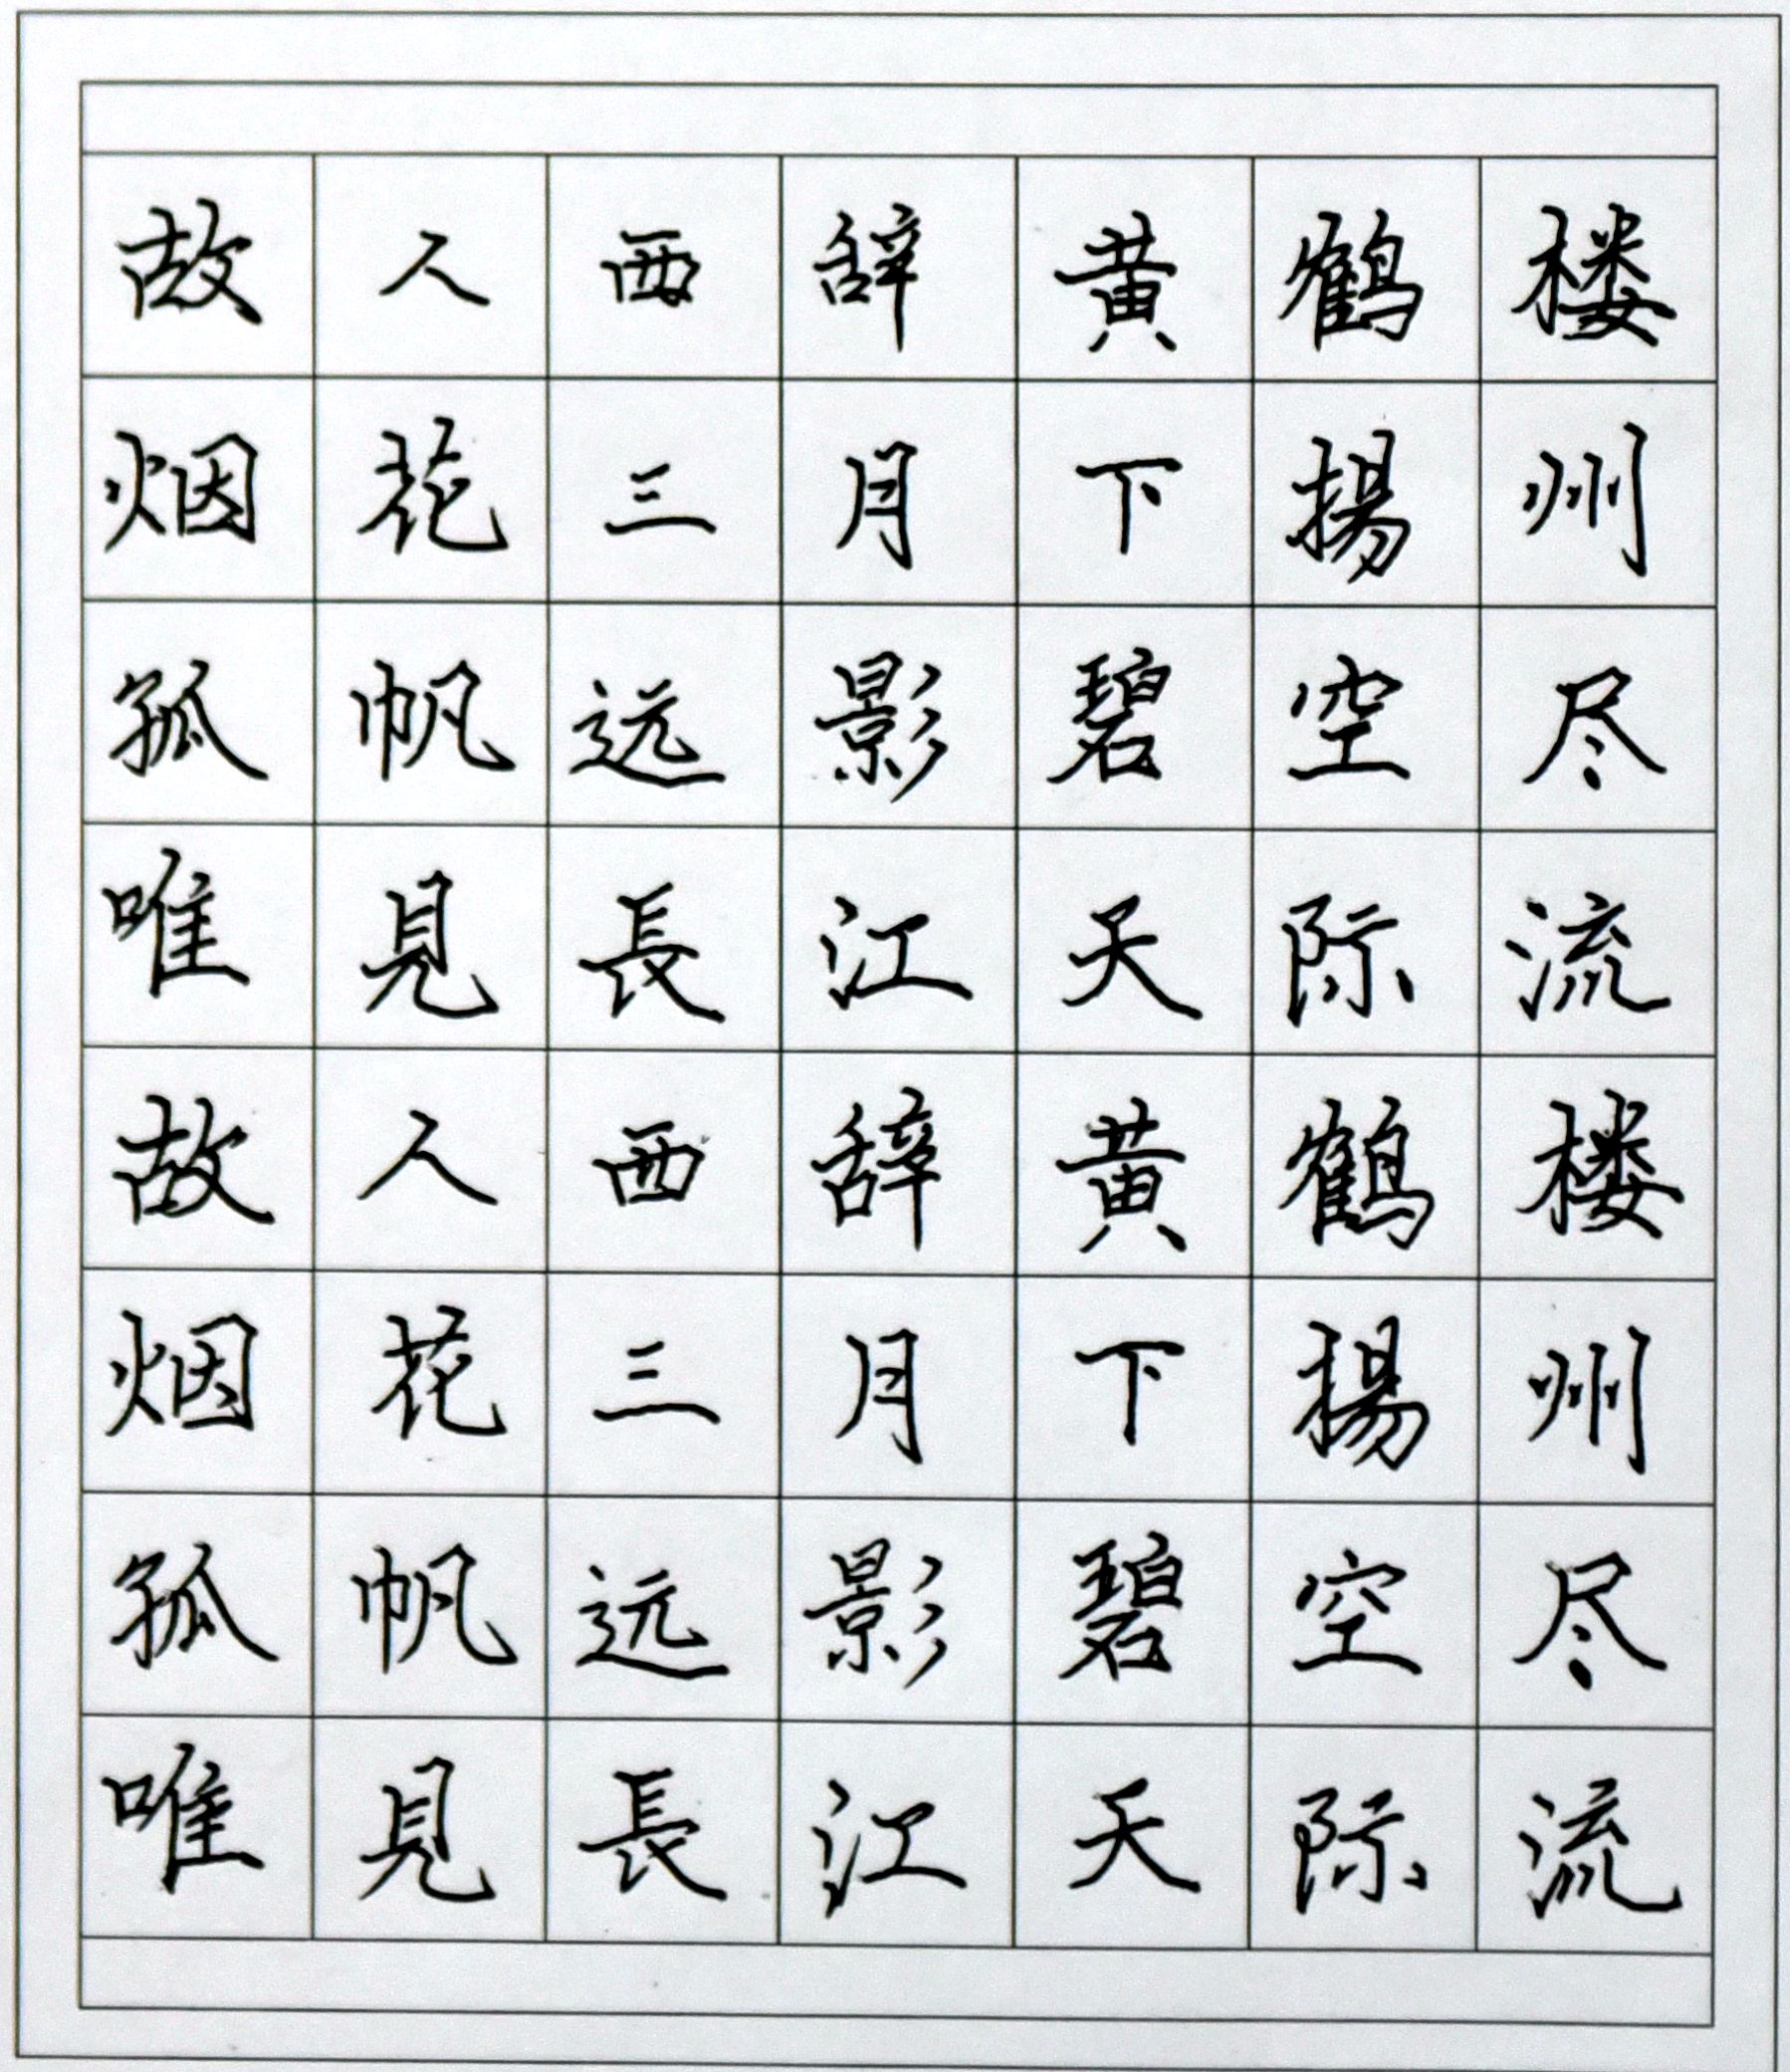 故人西辞黄鹤楼
烟花三月下揚州
孤帆远影碧空尽
唯見長江天际流
故人西辞黄鹤楼
烟花三月下揚州
孤帆远影碧空尽
唯見長江天际流